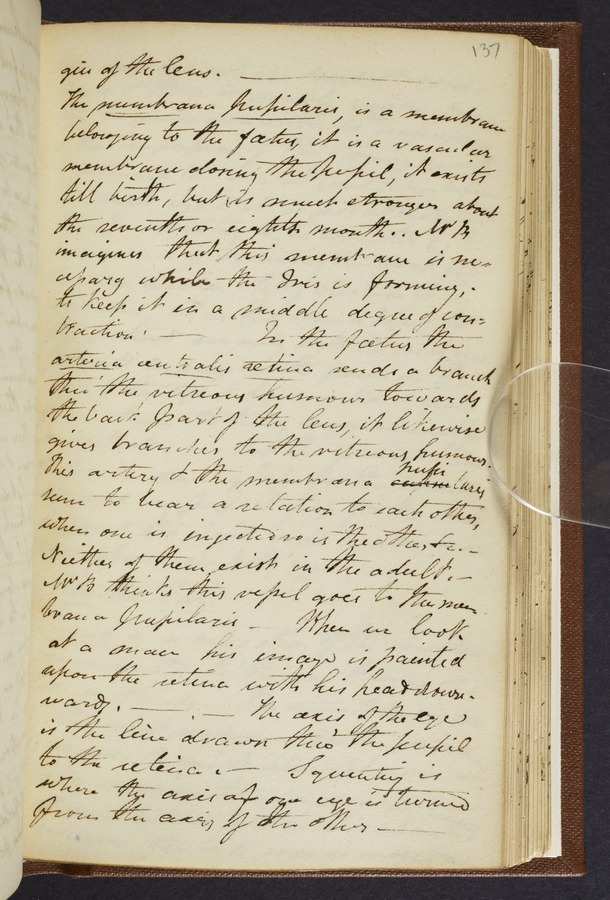 137
gin of the lens.
The membrana pupilaris, is a membrane
belonging to the fœtus, it is a vascular
membrane closing the pupil, it exists
till birth, but is much stronger about
the seventh or eighth month. Mr B
imagines that this membrane is ne-
cessary while the Iris is forming,
to keep it in a middle degree of con-
traction. — In the fœtus the
arteria centralis retina sends a branch
thro' the vitreous humour towards
the back part of the lens, it likewise
gives branches to the vitreous humour.
This artery & the membrana pupilaris
seem to bear a relation to each other,
when one is injected so is the other &c. –
Neither of them exist in the adult. –
Mr B thinks this vessel goes to the mem-
brana pupilaris – When we look
at a man his image is painted
upon the retina with his head down-
wards. — . — The axis of the eye
is the line drawn thro' the pupil
to the retina – Squenting is
where the axis of one eye is turned
from the axis of the other –